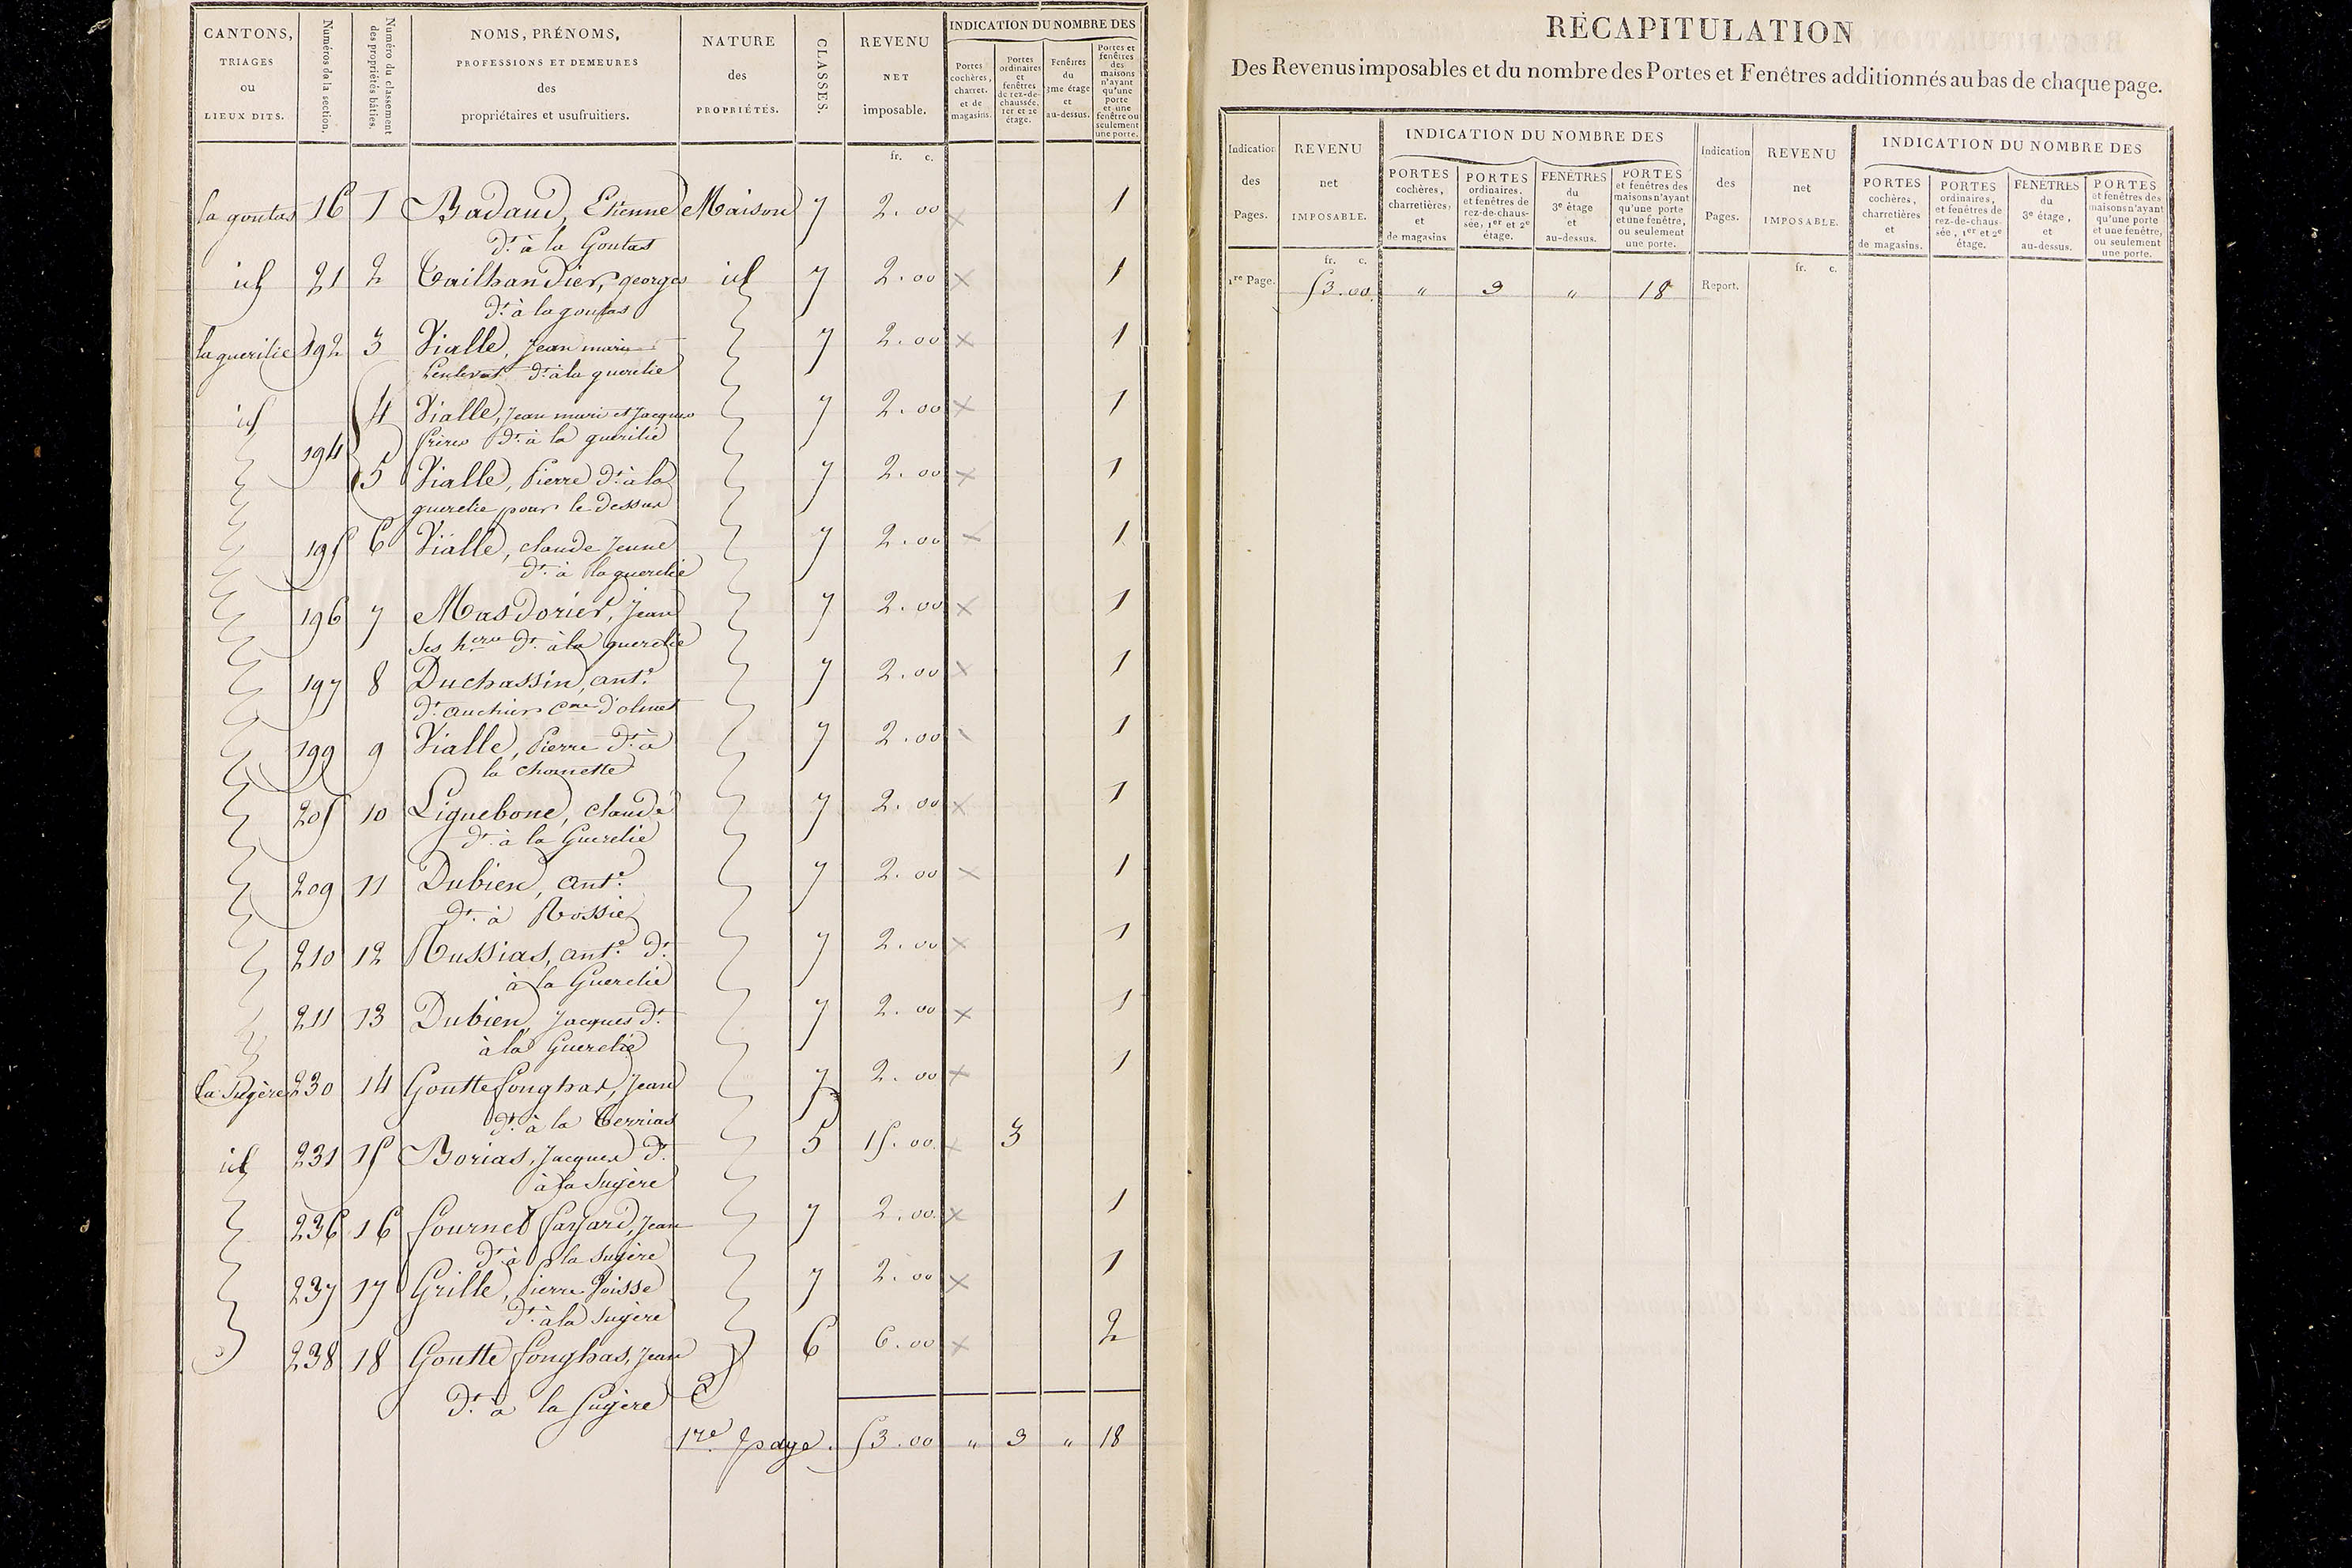 CANTONS, TRIAGES ou LIEUX DITS. | Numéros de la section. | Numéro du classement des propriétés bâties. | NOMS, PRÉNOMS, PROFESSIONS ET DEMEURES des propriétaires et usufruitiers. | NATURE des PROPRIÉTÉS. | CLASSES. | REVENU NET imposable. | INDICATION DU NOMBRE DES
Portes cochères, charret. et de magasins. | Portes ordinaires et fenêtres de rez-de-chaussée, 1er et 2e étage. | Fenêtres du 3me étage et au-dessus. | Portes et fenêtres des maisons n'ayant qu'une porte et une fenêtre ou seulement une porte.
fr. c.
la goutas 16 1 Badaud, Etienne Maison 7 2.00 1
dt. à la Goutas
id 21 2 Tailhandier, georges id 7 2.00 1
dt. à la goutas
la guerilie 192 3 Vialle, jean marie 7 2.00 1
dt. à la querelie
id 4 Vialle, jean marie et jacques 7 2.00 1
194 frères dt. à la guerilie
5 Vialle, Pierre dt. à la 7 2.00 1
querelie pour le dessus
195 6 Vialle, claude jeune 7 2.00 1
dt. à la querelie
196 7 Masdorier, jean 7 2.00 1
ses hers dt. à la querelie
197 8 Duchassin, ant.e 7 2.00 1
dt. auchier cne d'olmet
199 9 Vialle, Pierre dt. à 7 2.00 1
la chomette
205 10 Liquebone, claude 7 2.00 1
dt. à la Guerelie
209 11 Dubien, ant.e 7 2.00 1
dt. à Rossie
210 12 Russias, ant.e dt. 7 2.00 1
à la Guerelie
211 13 Dubien, jacques dt. 7 2.00 1
à la Guerelie
la Sugère 230 14 Goutte fonghas, jean 7 2.00 1
dt. à la Terrias
id 231 15 Borias, jacques dt. 5 15.00 3
à la Sugère
236 16 fournet fayard, jean 7 2.00 1
dt. à la Sugère
237 17 Grille, Pierre 7 2.00 1
dt. à la Sugère
238 18 Goutte fonghas, jean 6 6.00 2
dt. à la Sugère
1re page. 53.00 " 3 " 18
RÉCAPITULATION
Des Revenus imposables et du nombre des Portes et Fenêtres additionnés au bas de chaque page.
Indication des Pages. | REVENU net IMPOSABLE. | INDICATION DU NOMBRE DES | Indication des Pages. | REVENU net IMPOSABLE. | INDICATION DU NOMBRE DES
PORTES cochères, charretières, et de magasins | PORTES ordinaires. et fenêtres de rez-de-chaussée, 1er et 2e étage. | FENÊTRES du 3e étage et au-dessus. | PORTES et fenêtres des maisons n'ayant qu'une porte et une fenêtre, ou seulement une porte. | PORTES cochères, charretières et de magasins. | PORTES ordinaires, et fenêtres de rez-de-chaussée, 1er et 2e étage. | FENÊTRES du 3e étage, et au-dessus. | PORTES et fenêtres des maisons n'ayant qu'une porte et une fenêtre, ou seulement une porte.
fr. c. fr. c.
1re Page. 53.00. " 3 " 18 Report.